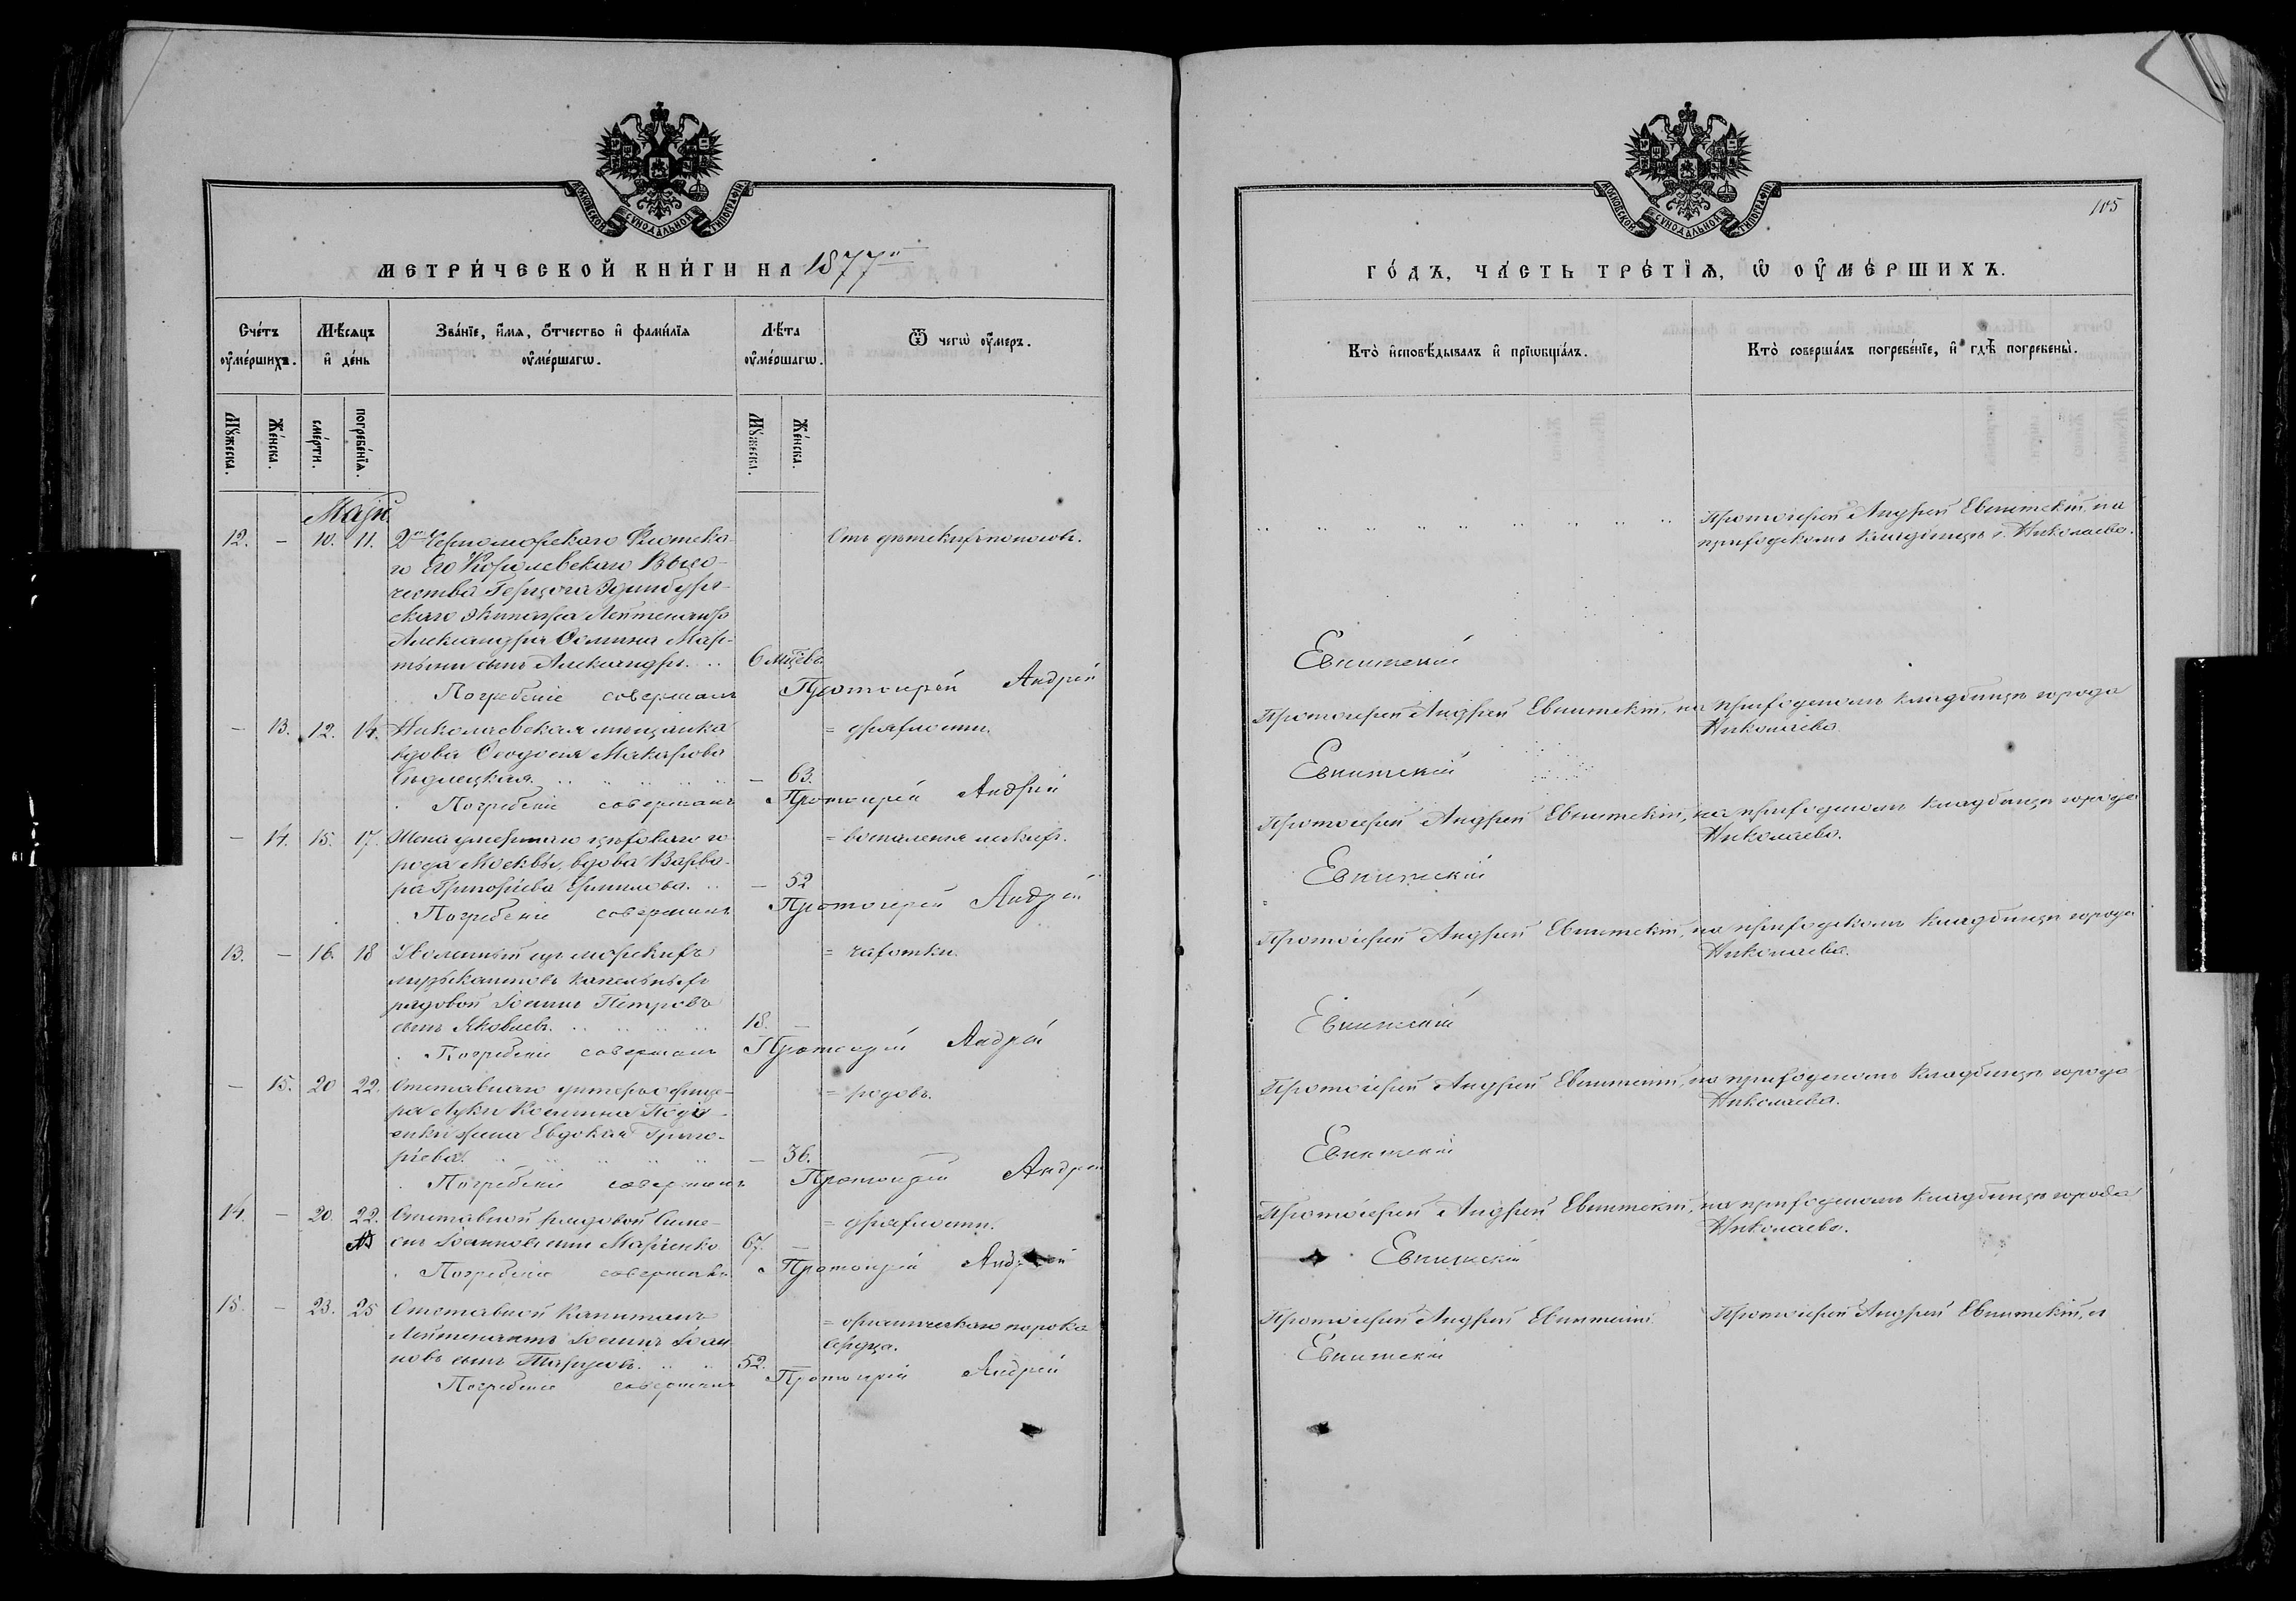 МОСКОВСКОЙ СѴНОДАЛЬНОЙ ТИПОГРАФІИ
МЕТРИ́ЧЕСКОЙ КНИ́ГИ НА 1877й
Сче́тъ ᲂу҆ме́ршихъ.
Мѣ́сѧцъ и҆ де́нь
Зва́нїе, и҆́мѧ, ѻ҆́тчество и҆ фами́лїѧ ᲂу҆ме́ршагѡ.
Лѣ́та ᲂу҆ме́ршагѡ.
Ѿ чегѡ̀ ᲂу҆́меръ.
Мꙋ́жеска.
Же́нска.
сме́рти.
погребе́нїѧ.
Мꙋ́жеска.
Же́нска.
Маія
12. – 10. 11. 2го Черноморскаго Флотска-
го Его Королевскаго Высо-
чества Герцога Эдинбург-
скаго экипажа Лейтенанта
Александра Осипова Мар-
тыни сынъ Александръ. 6 мцевъ Отъ дѣтскихъ
Погребеніе совершалъ Протоіерей Андрей
– 13. 12. 14. Николаевская мѣщанка
вдова Ѳеодосія Макарова
– 63. = дряхлости.
Погребеніе совершалъ Протоіерей Андрей
– 14. 15. 17. Жена умершаго цеховаго го-
рода Москвы, вдова Варва-
ра Григорьева – 52 = воспаленія легкихъ.
Погребеніе совершалъ Протоіерей Андрей
13. – 16. 18 Уволенный изъ морскихъ
музыкантовъ
рядовой Іоаннъ Петровъ
сынъ Яковлевъ. 18. – = чахотки.
Погребеніе совершалъ Протоіерей Андрей
– 15. 20 22. Отставнаго унтеръ офице-
ра Луки Косьмина
жена Евдокія Григо-
рьева. – 36. = родовъ.
Погребеніе совершалъ Протоіерей Андрей
14. – 20. 22. Отставной рядовой Симе-
онъ Іоанновъ сынъ Марченко 67. – = дряхлости.
Погребеніе совершалъ Протоіерей Андрей
15. – 23. 25 Отставной Капитанъ
Лейтенантъ Іоаннъ Іоан-
новъ сынъ 52. = органическаго порока
сердца.
Погребеніе совершалъ Протоіерей Андрей
МОСКОВСКОЙ СѴНОДАЛЬНОЙ ТИПОГРАФІИ
105
ГО́ДЪ, ЧА́СТЬ ТРЕ́ТЇѦ, Ѡ҆ ОУ҆МЕ́РШИХЪ.
Кто̀ и҆сповѣ́дывалъ и҆ прїѡбща́лъ.
Кто̀ соверша́лъ погребе́нїе, и҆ гдѣ̀ погребены̀.
Протоіерей Андрей Евнитскій, на
приходскомъ кладбищѣ г. Николаева.
Евнитскій
Протоіерей Андрей Евнитскій, на приходскомъ кладбищѣ города
Николаева.
Евнитскій
Протоіерей Андрей Евнитскій, на приходскомъ кладбищѣ города
Николаева.
Евнитскій
Протоіерей Андрей Евнитскій, на приходскомъ кладбищѣ города
Николаева.
Евнитскій
Протоіерей Андрей Евнитскій, на приходскомъ кладбищѣ города
Николаева.
Евнитскій
Протоіерей Андрей Евнитскій, на приходскомъ кладбищѣ города
Николаева.
Евнитскій
Протоіерей Андрей Евнитскій. Протоіерей Андрей Евнитскій, а
Евнитскій